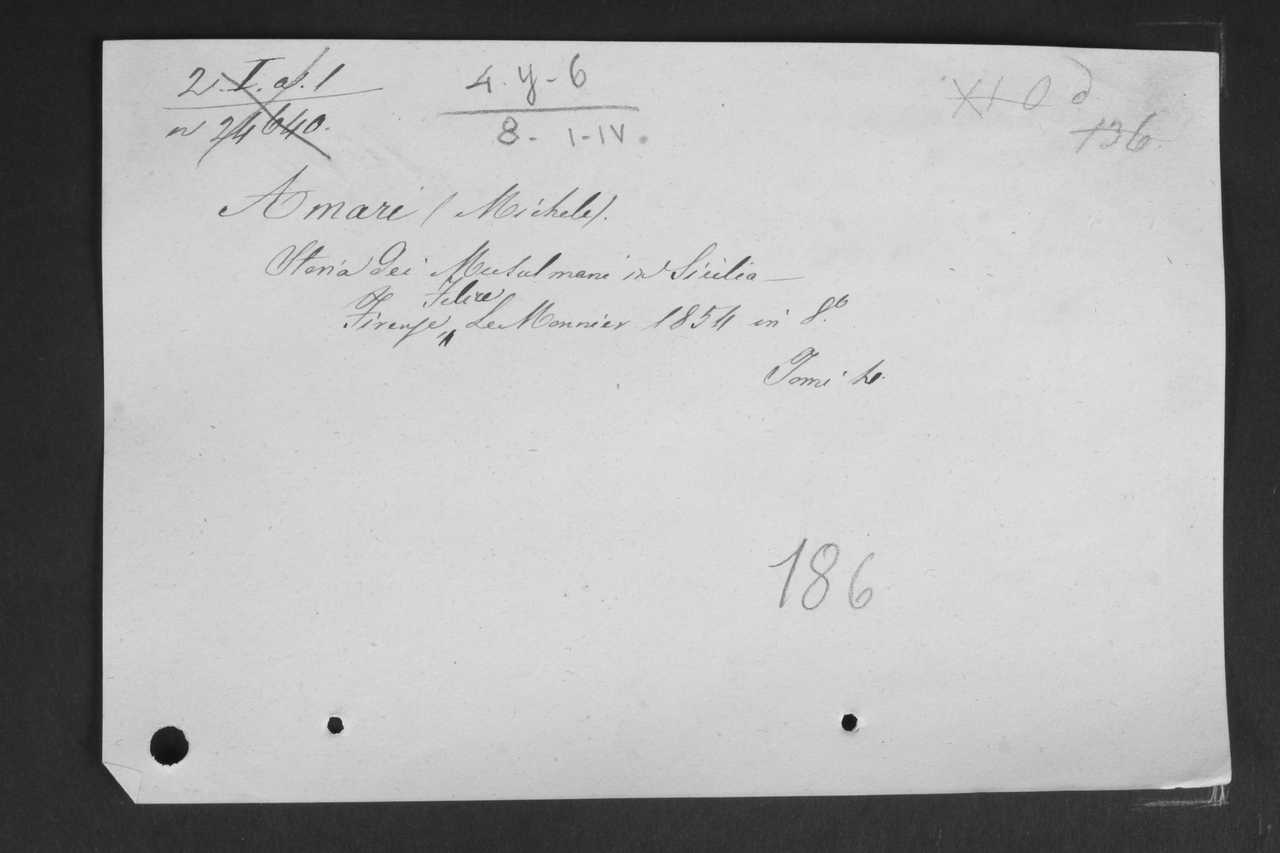 2. I. a. 1
n 24640.
4. y - 6
8 - I-IV.
XI O d
136
Amari (Michele).
Storia dei Musulmani in Sicilia —
Firenze, Felice Le Monnier 1854 in 8.o
Tomi 4.
186